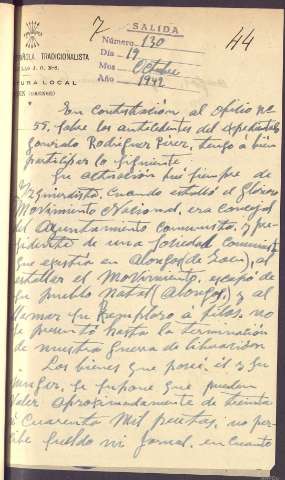 7
SALIDA
44
Número 130
Día 19
Mes Octubre
Año 1942
AÑOLA TRADICIONALISTA
Y DE LAS J. O. N-S.
TURA LOCAL
(ORENSE)
En contestación al oficio nº
55, sobre los antecedentes del expedientado
Gonzalo Rodriguez Perez, tengo a bien
participar lo siguiente
Su actuación fué siempre de
izquierdista. Cuando estalló el Glorioso
Movimiento Nacional, era concejal
del Ayuntamiento comunista y pre-
sidente de una Sociedad Comunista
que existía en Alongos (de Toen), al
estallar el Movimiento, escapó de
su pueblo natal (Alongos) y al
llamar su Reemplazo a filas, no
se presentó hasta la terminación
de nuestra guerra de liberación.
Los bienes que posee, él y su
mujer, se supone que pueden
valer aproximadamente de treinta
a cuarenta mil pesetas, no per-
cibe sueldo ni jornal, en cuanto